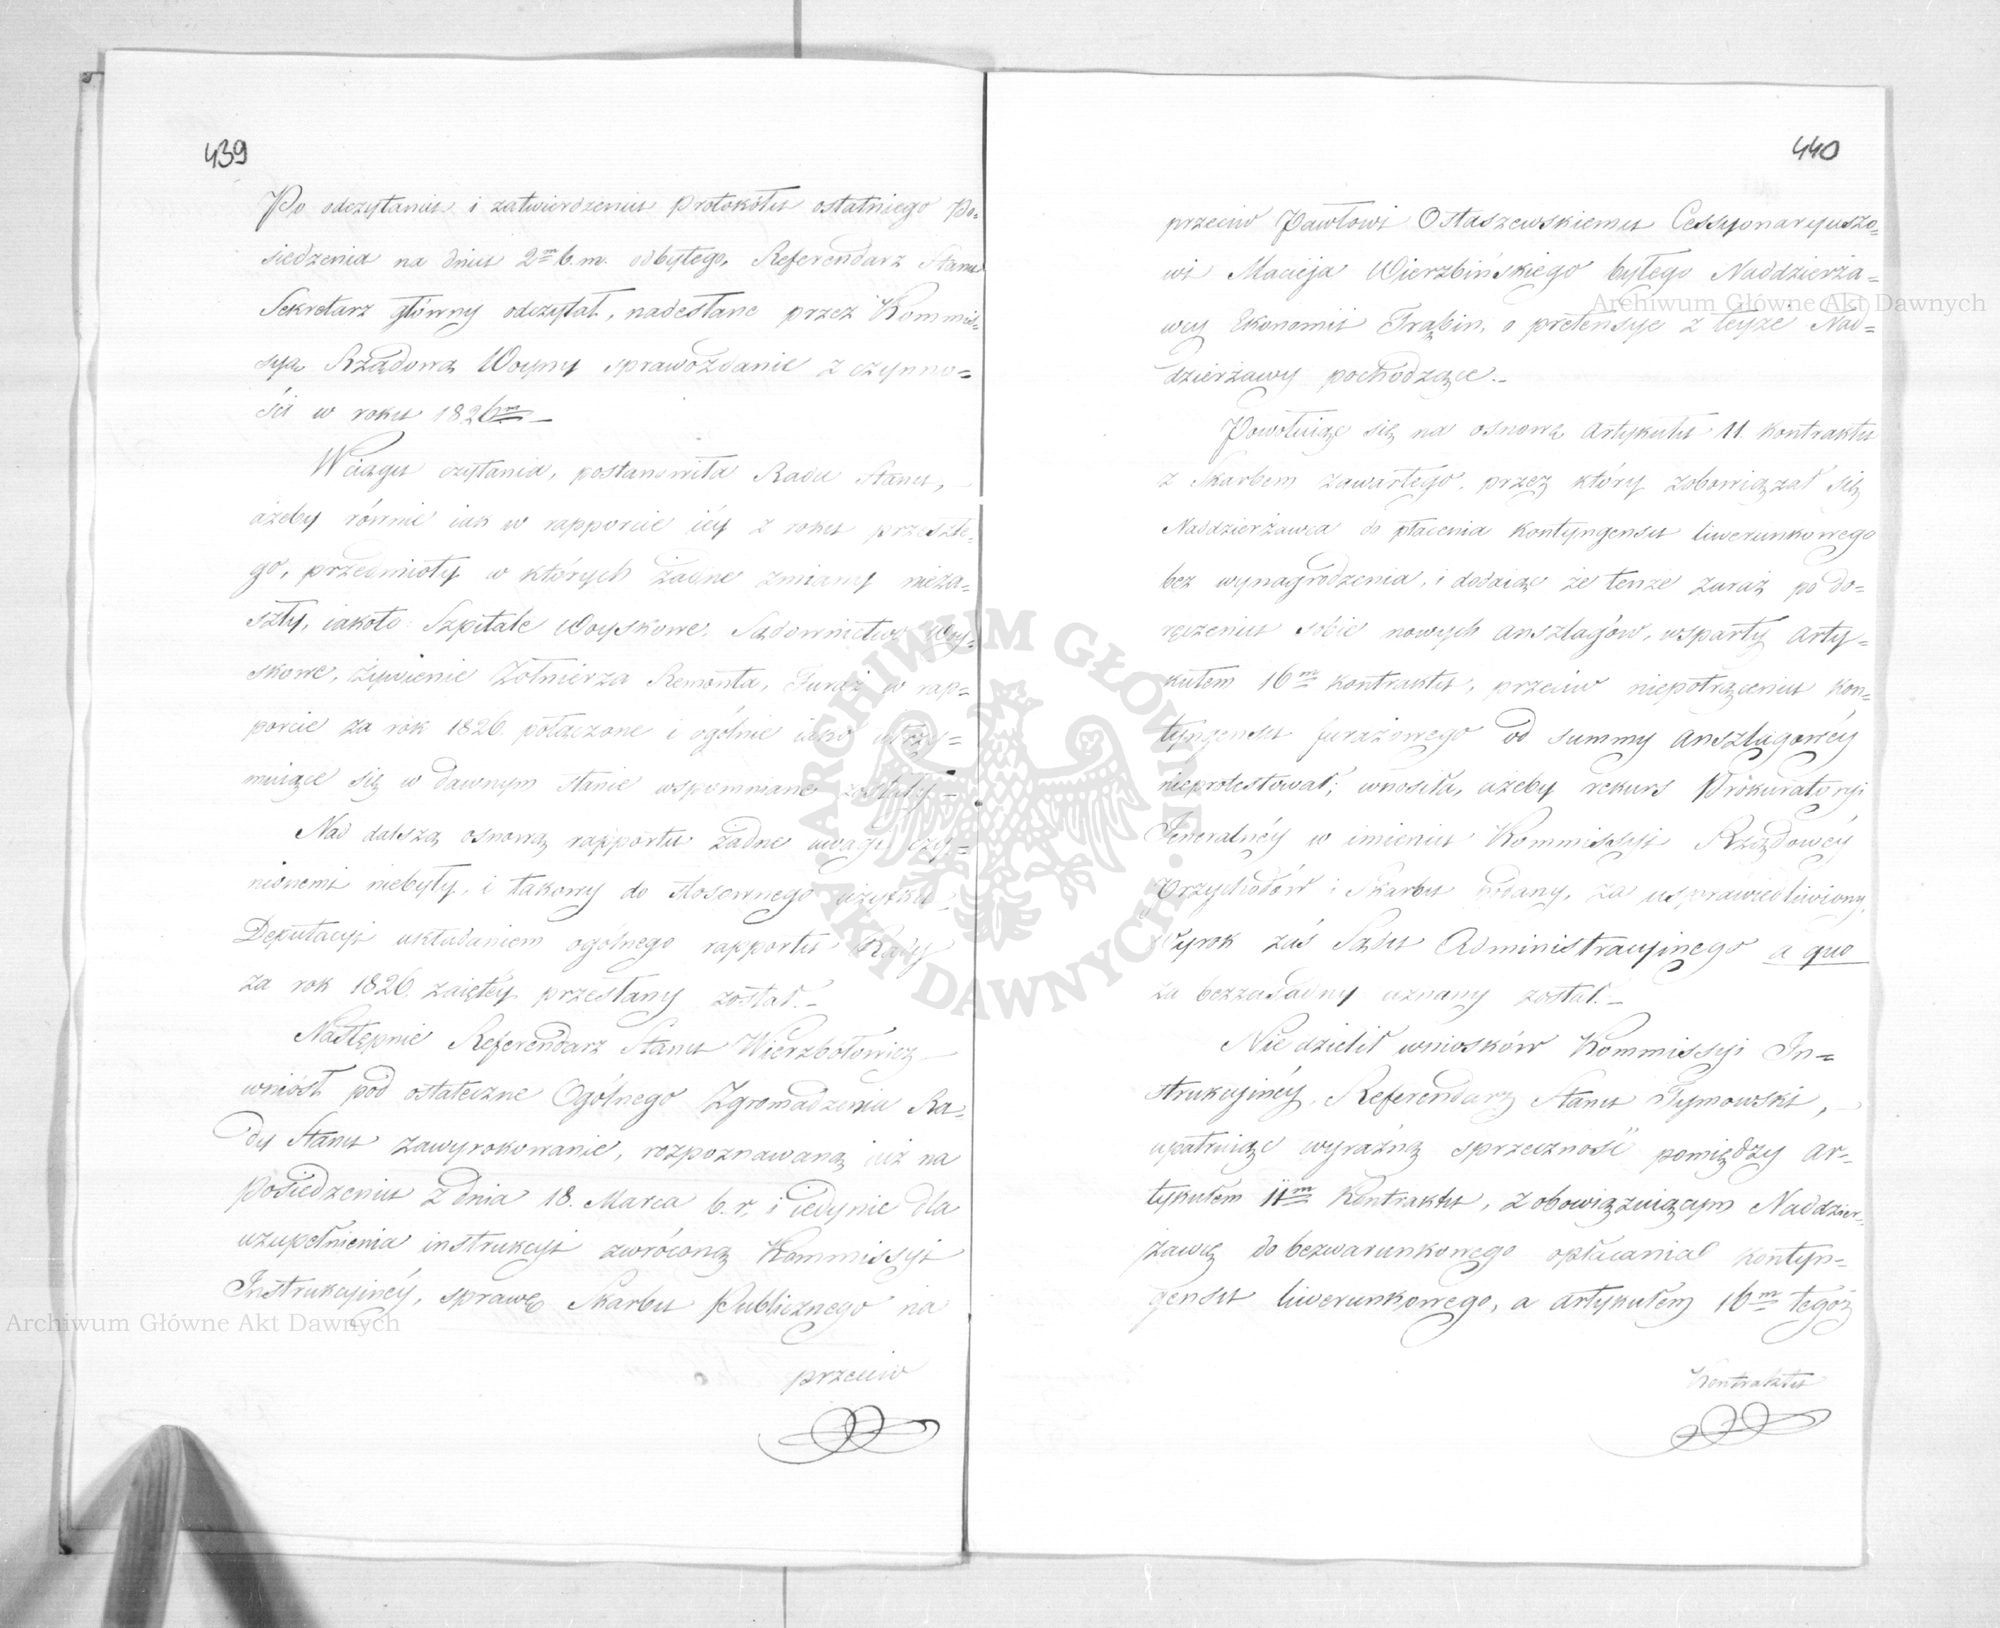 439
Po odczytaniu i zatwierdzeniu protokółu ostatniego Po=
siedzenia na dniu 2m b. m. odbytego, Referendarz Stanu
Sekretarz główny odczytał, nadesłane przez Kommis=
syą Rządową Woyny sprawozdanie z czynno=
ści w roku 1826m —
W ciągu czytania, postanowiła Rada Stanu, —
ażeby równie iak w rapporcie iéy z roku przeszłe=
go, przedmioty w których żadne zmiany nieza=
szły, iakoto: Szpitale Woyskowe, Sądownictwo Woy=
skowe, żywienie Żołnierza Remonta, Furaż w rap=
porcie za rok 1826. połączone i ogólnie iako utrzy=
muiące się w dawnym stanie wspomniane zostały —
Nad dalszą osnową rapportu żadne uwagi czy=
nionemi niebyły, i takowy do stosownego użytku
Deputacyi układaniem ogólnego rapportu Rady
za rok 1826. zaiętéy przesłany został. —
Następnie Referendarz Stanu Wierzbołowicz —
wniósł pod ostateczne Ogólnego Zgromadzenia Ra=
dy Stanu zawyrokowanie, rozpoznawaną iuż na
posiedzeniu z dnia 18. Marca b. r. i iedynie dla
uzupełnienia instrukcyi zwróconą Kommissyi
Instrukcyinéy, sprawę Skarbu Publicznego na
przeciw
440
przeciw Pawłowi Ostaszewskiemu Cessyonaryuszo=
wi Macieja Wierzbińskiego byłego Naddzierża=
wcy Ekonomii Trąbin, o pretensye z teyże Nad=
dzierżawy pochodzące. —
Powołuiąc się na osnowę Artykułu 11. kontraktu
z Skarbem zawartego, przez który zobowiązał się
Naddzierżawca do płacenia kontyngensu liwerunkowego
bez wynagrodzenia, i dodaiąc że tenże zaraz po do=
ręczeniu sobie nowych anszlagów, wsparty Arty=
kułem 16m kontraktu, przeciw niepotrąceniu kon=
tyngensu furażowego od summy anszlagowéy
nieprotestował; wnosiła, ażeby rekurs Prokuratoryi
Jeneralnéy w imieniu Kommissyi Rządowéy
Przychodów i Skarbu podany, za usprawiedliwiony,
wyrok zaś Sądu Administracyinego a quo
za bezzasadny uznany został. —
Nie dzielił wniosków Kommissyi In=
strukcyinéy, Referendarz Stanu Tymowski, —
upatruiąc wyraźną sprzeczność pomiędzy Ar=
tykułem 11m Kontraktu, zobowiązuiącym Naddzier=
żawcę do bezwarunkowego opłacania kontyn=
gensu liwerunkowego, a artykułem 16m tegoż
Kontraktu
Archiwum Główne Akt Dawnych
Archiwum Główne Akt Dawnych
ARCHIWUM GŁÓWNE AKT DAWNYCH